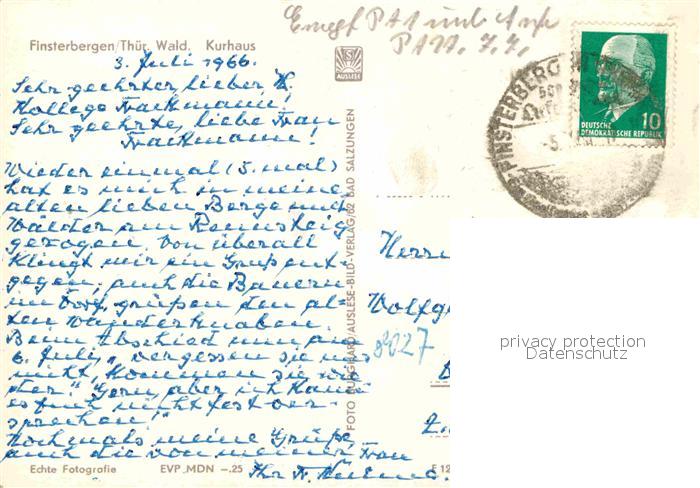 Finsterbergen/Thür. Wald. Kurhaus
3. Juli 1966.
Sehr geehrter, lieber H.
Kollege Trautmann,
Sehr geehrte, liebe Frau
Trautmann!
Wieder einmal (5. mal)
hat es mich in meine
alten lieben Berge und
Wälder am Rennsteig
gezogen. Von überall
klingt mir ein Gruß ent-
gegen; auch die Bauern
im Dorf grüßen den al-
ten Wanderknaben.
Beim Abschied nun am
6. Juli, „vergessen sie uns
nicht, kommen sie wie-
der." Gern, aber ich kann
es Euch nicht fest ver-
sprechen!
Nochmals meine Grüße,
auch die von meiner Frau
Ihr
Echte Fotografie EVP „MDN –.25
AUSLESE
FOTO BURGHARD/AUSLESE-BILD-VERLAG/62 BAD SALZUNGEN
FINSTERBERGEN
10
DEUTSCHE
DEMOKRATISCHE REPUBLIK
Herrn
Wolfg
8027
privacy protection
Datenschutz